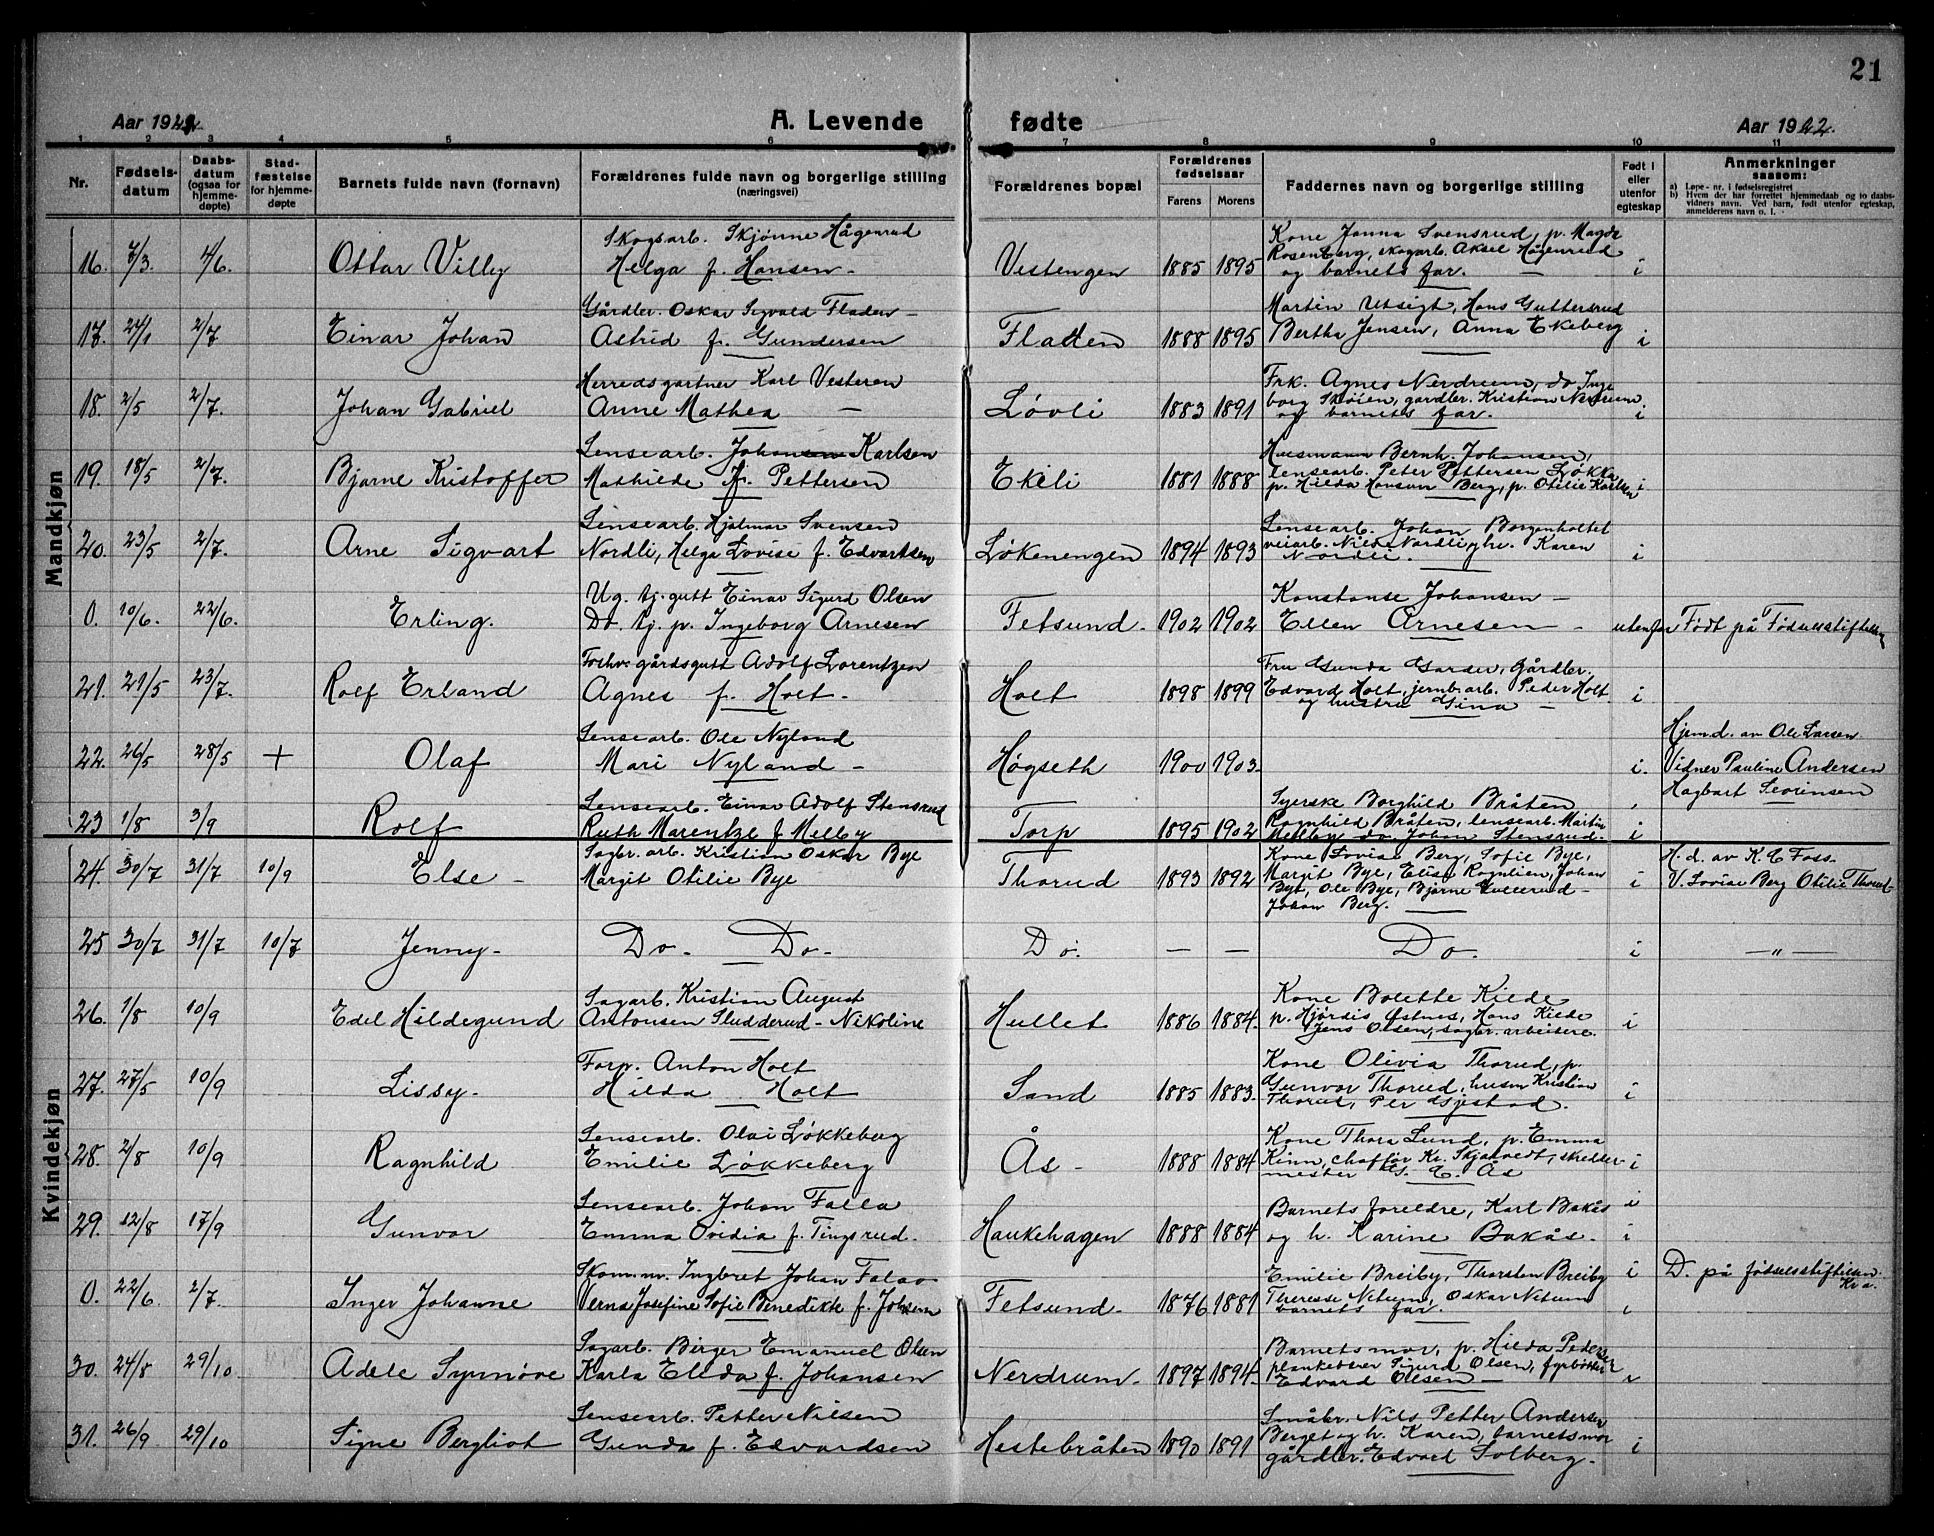 21
Aar 1922. A. Levende fødte Aar 1922.
1 2 3 4 5 6 7 8 9 10 11
Nr. Fødselsdatum Daabsdatum (ogsaa for hjemmedøpte) Stadfæstelse for hjemmedøpte Barnets fulde navn (fornavn) Forældrenes fulde navn og borgerlige stilling (næringsvei) Forældrenes bopæl Forældrenes fødselsaar Farens Morens Faddernes navn og borgerlige stilling Født i eller utenfor egteskap Anmerkninger saasom:
a) Løpe-nr. i fødselsregistret
b) Hvem der har forrettet hjemmedaab og to daabsvidners navn. Ved barn, født utenfor egteskap, anmelderens navn o. l.
Mandkjøn
16. 7/3 4/6. Ottar Villy
Skogsarb. Skjønne Hågenrud
Helga f. Hansen -
Vestengen 1885 1895
Kone Janna Svensrud, p. Magda
Rosenberg, skogarb. Aksel Hågenrud
og barnets far. -
i
17. 24/1 2/7 Einar Johan
Gårdbr. Oskar Sigvald Fladen -
Astrid f. Gundersen
Fladen 1888 1895
Martin Utsigt, Hans Guttersrud
Bertha Jensen, Anna Ekeberg
i
18. 2/5 2/7. Johan Gabriel
Herredsgartner Karl Vesteren
Anne Mathea -
Løvli 1883 1891
Frk. Agnes Nerdrum, do Inge
borg Skøien, gårdbr. Kristian Nerdrum
og barnets far.
i
19. 18/5 2/7. Bjarne Kristoffer
Lensearb. Johansen Karlsen
Mathilde f. Pettersen
Ekeli 1881 1888
Husmann Bernh. Johansen,
lensearb. Peter Pettersen Løkka
p. Hilda Hansen Berg, p. Otilie Karlsen
i
20. 23/5 2/7. Arne Sigvart
Lensearb. Hjalmar Svensen
Nordli, Helga Lovise f. Edvartsen
Løkenengen 1894 1893
Lensearb. Johan Borgenholtet
veiarb. Nils Nordli, hr. Karen
Nordli.
i
0. 10/6. 22/6. Erling.
Ug. tj. gutt Einar Sigurd Olsen
Do. tj. p. Ingeborg Arnesen
Fetsund. 1902 1902
Konstanse Johansen -
Ellen Arnesen -
utenfor Født på Fødselsstiftelsen
21. 21/5 23/7. Rolf Erland
Forhv. gårdsgutt Adolf Lorentzen
Agnes f. Holt -
Holt 1898 1899
Fru Gunda Garser, gårdbr.
Edvard Holt, jernb.arb. Peder Holt
og hustru Gina -
i
22. 26/5 28/5 + Olaf
Lensearb. Ole Nyland
Mari Nyland -
Høgseth 1900 1903.
i.
Hjemd. av Ole Larsen.
Vidner Pauline Andersen
Hagbart Seorinsen
23 1/8 3/9 Rolf
Lensearb. Einar Adolf Stensrud
Ruth Marentze f Melby
Torp 1895 1902
Syerske Borghild Bråten
Ragnhild Bråten, lensearb. Martin
Melby do. Johan Stensrud.
i
Kvindekjøn
24. 30/7 31/7 10/9 Else -
Sagbr. arb. Kristian Oskar Bye
Margit Otilie Bye
Thorud 1893 1892
Kone Lovise Berg, Sofie Bye,
Margit Bye, Elise Rognlien, Johan
Bye, Ole Bye, Bjarne Gullerud -
Johan Berg.
i
H. d. av K. E Foss.
V. Lovise Berg Otilie Thorud -
25 30/7 31/7 10/7 Jenny - Do - Do - Do. - - Do. i - " -
26. 1/8 10/9 Edel Hildegund
Sagarb. Kristian August
Antonsen Sludderud - Nikoline
Hullet 1886 1884.
Kone Bolette Kilde
p. Hjørdis Østnes, Hans Kilde
Jens Olsen, sagbr. arbeidere.
i
27. 27/5 10/9 Lissy.
Forp. Anton Holt
Hilda Holt
Sand 1885 1883.
Kone Olivia Thorud, p.
Gunvor Thorud, husm Kristian
Thorud, Per Gjestad.
i
28. 2/8 10/9 Ragnhild
Lensearb. Olai Løkkeberg
Emilie Løkkeberg
Ås - 1888 1884
Kone Thora Lund, p. Emma
Kinn, chaffør Kr. Skjatvedt, skredder
mester G. E. Ås
i
29. 12/8 17/9 Gunvor
Lensearb. Johan Falla
Emma Ovidia f. Tingsrud.
Haukehagen 1888 1884
Barnets foreldre, Karl Bakås
og h. Karine Bakås.
i
i
0. 22/6. 2/7. Inger Johanne
Skom.m. Ingbret Johan Falao
Verna Josefine Sofie Benedikte f. Johnsen
Fetsund. 1876 1881
Emilie Breiby, Thorsten Breiby
Therese Nitum, Oskar Nitum
barnets far.
i
i
D. på fødselsstiftelsen.
Kra.
30. 24/8 29/10. Adele Synnøve
Sagarb. Birger Emanuel Olsen
Karla Elida f. Johansen
Nerdrum. 1897 1894.
Barnets mor, p. Hilda Pedersen
plankebærer Sigurd Olsen, fyrbøter
Edvard Olsen -
i
31. 26/9 29/10 Signe Bergliot
Lensearb. Petter Nilsen
Gunda f. Edvardsen
Hestebråten 1890 1891
Småbr. Nils Petter Andersen
Berget og h. Karen, barnets mor
gårdbr. Edvard Solberg.
i